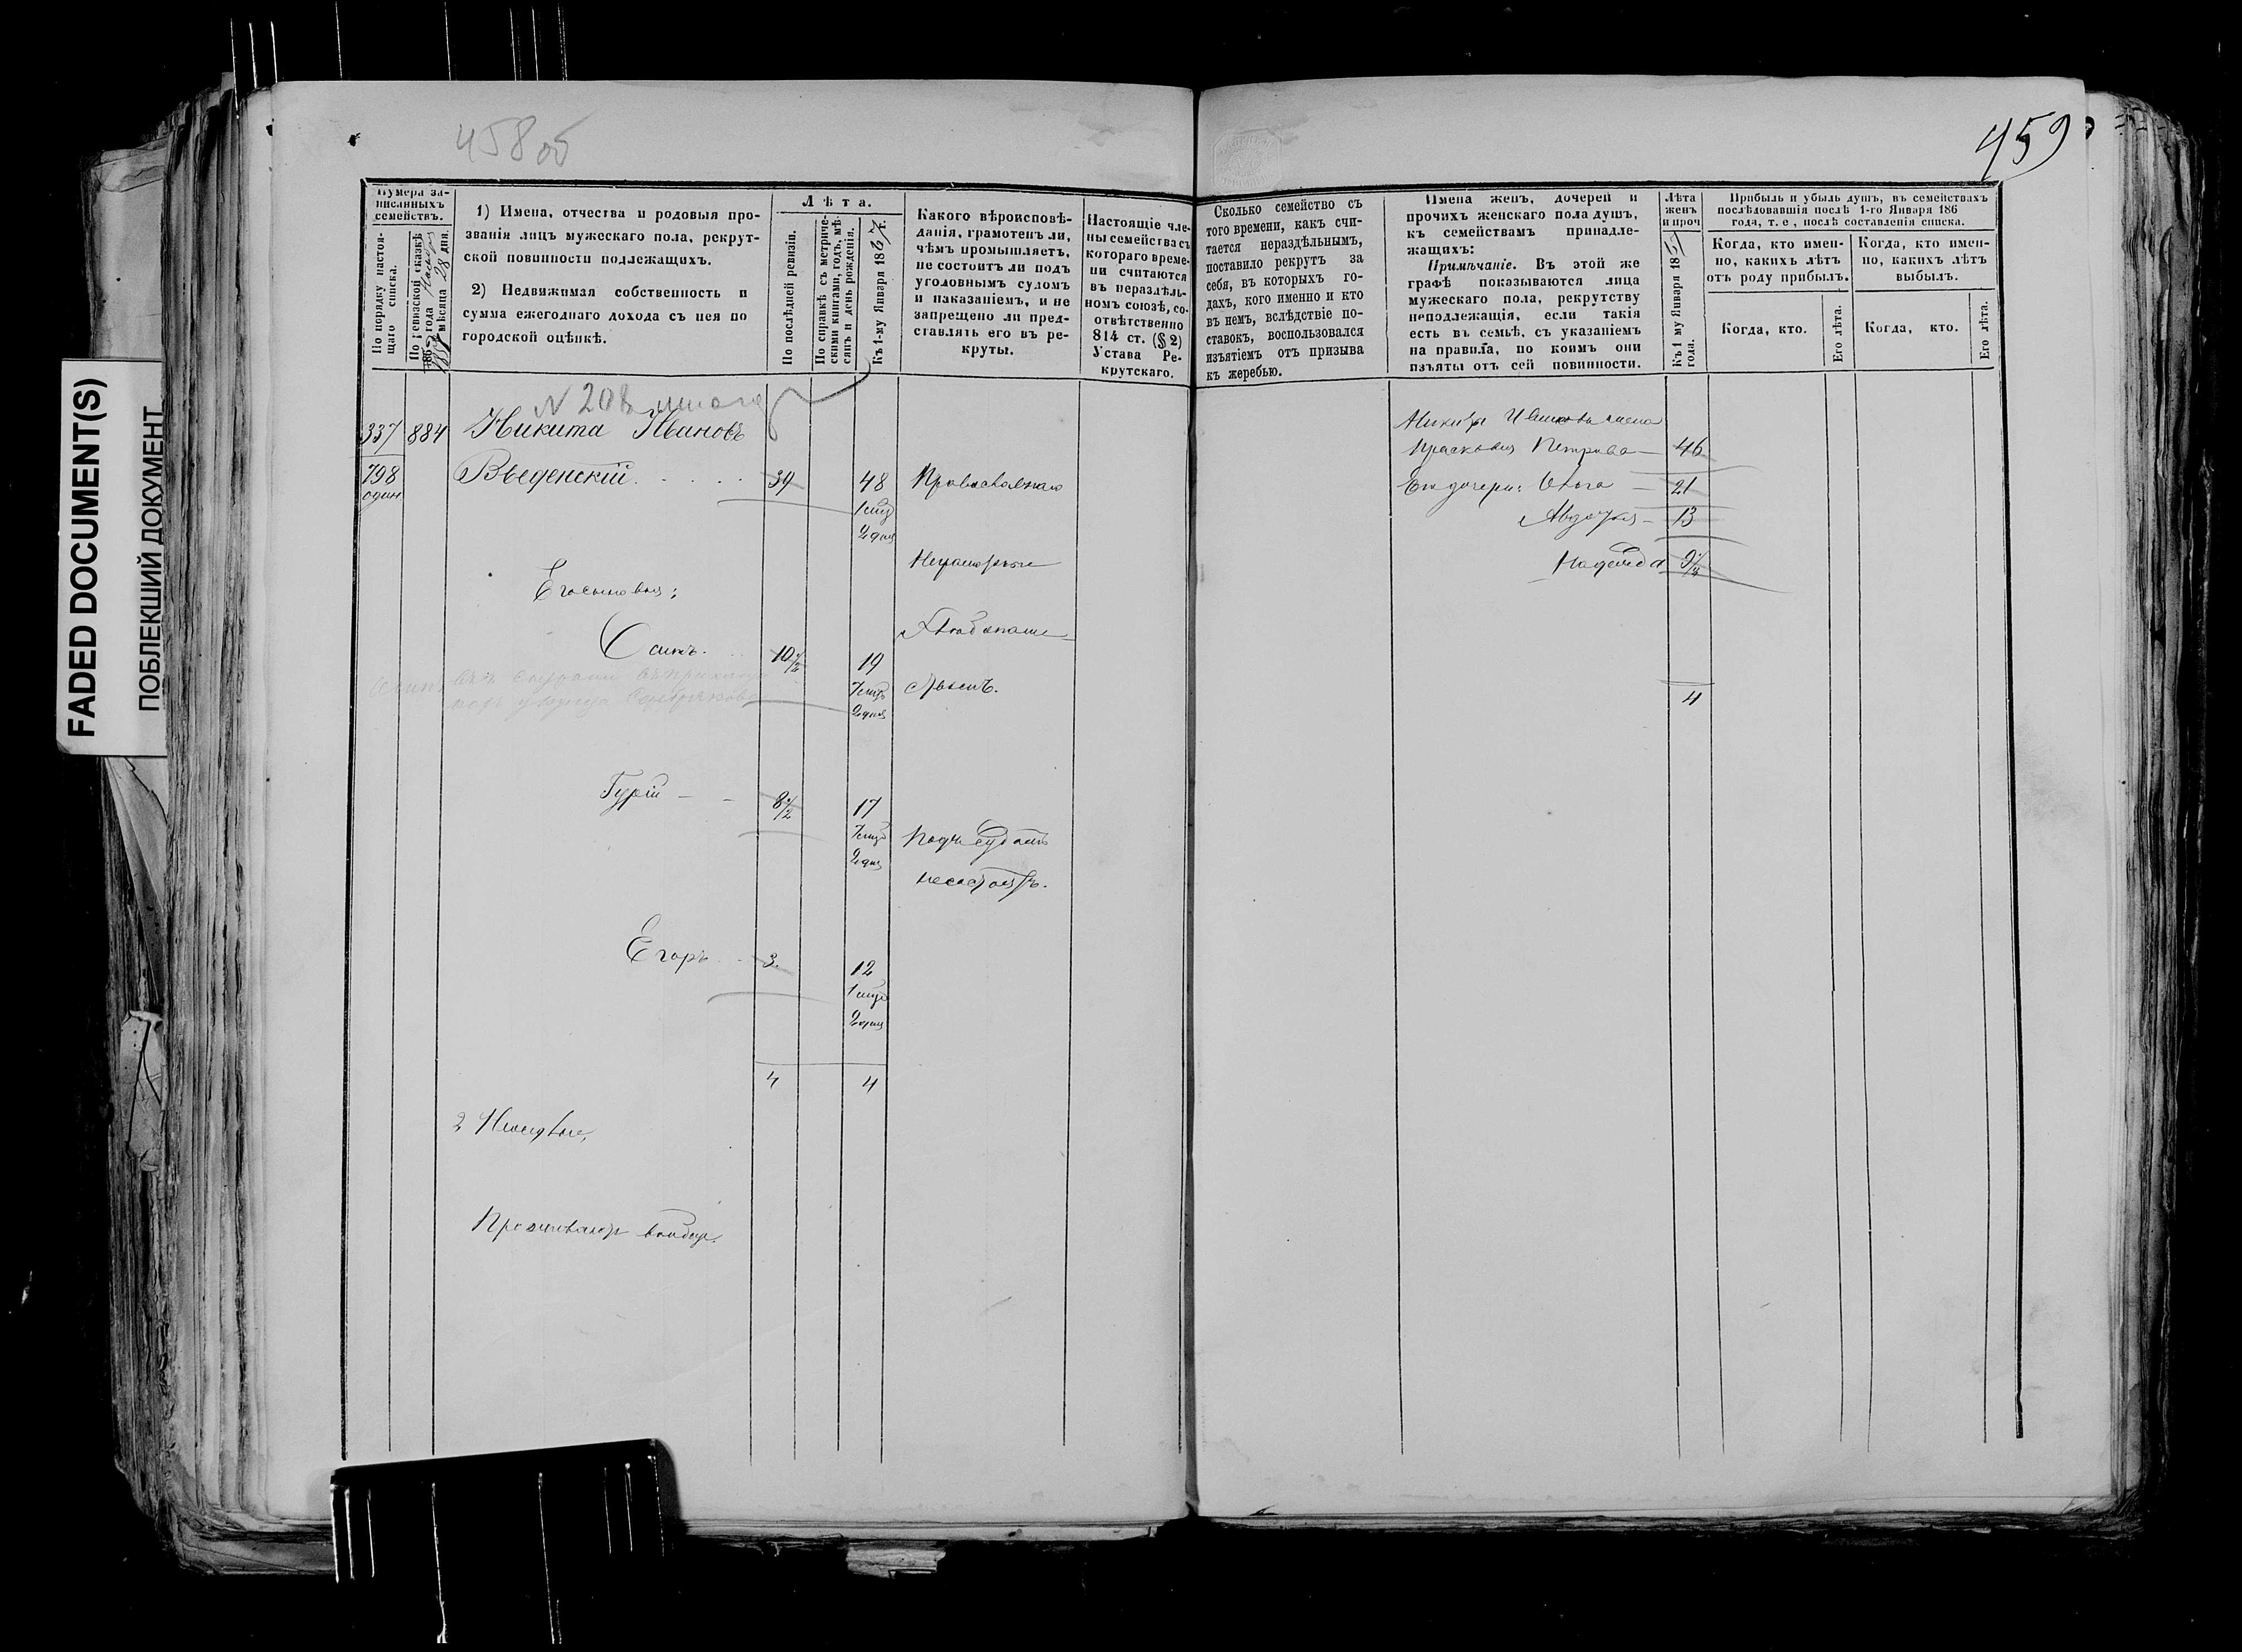 FADED DOCUMENT(S)
ПОБЛЕКШИЙ ДОКУМЕНТ
458об
Нумера за-
писанныхъ
семействъ.
По порядку настоя-
щаго списка.
По ревизской сказкѣ
185 года
мѣсяца 28 дня.
1) Имена, отчества и родовыя про-
званія лицъ мужескаго пола, рекрут-
ской повинности подлежащихъ.
2) Недвижимая собственность и
сумма ежегоднаго дохода съ нея по
городской оцѣнкѣ.
Лѣта.
По послѣдней ревизіи.
По справкѣ съ метриче-
скими книгами, годъ, мѣ-
сяцъ и день рожденія.
Къ 1-му Января 1867 г.
Какого вѣроисповѣ-
данія, грамотенъ ли,
чѣмъ промышляетъ,
не состоитъ ли подъ
уголовнымъ судомъ
и наказаніемъ, и не
запрещено ли пред-
ставлять его въ ре-
круты.
Настоящіе чле-
ны семейства съ
котораго време-
ни считаются
въ нераздѣль-
номъ союзѣ, со-
отвѣтственно
814 ст. (§ 2)
Устава Ре-
крутскаго.
N 208
337 884 Никита Ивановъ
798 Вѣеденскій 39 48 Православнаго
один
1 мѣс
2 дня
Неграмотные
Его сыновья:
Осипъ. 10 1/2 19
7 мѣс
2 дня
Гурій 8 1/2 17
7 мѣс
2 дня
Подъ судомъ
несостоятъ.
Егоръ 3 12
1 мѣс
2 дня
4 4
2 Неимѣютъ
Проживаютъ
459
Сколько семейство съ
того времени, какъ счи-
тается нераздѣльнымъ,
поставило рекрутъ за
себя, въ которыхъ го-
дахъ, кого именно и кто
въ немъ, вслѣдствіе по-
ставокъ, воспользовался
изъятіемъ отъ призыва
къ жеребью.
Имена женъ, дочерей и
прочихъ женскаго пола душъ,
къ семействамъ принадле-
жащихъ:
Примѣчаніе. Въ этой же
графѣ показываются лица
мужескаго пола, рекрутству
неподлежащія, если такія
есть въ семьѣ, съ указаніемъ
на правила, по коимъ они
изъяты отъ сей повинности.
Лѣта
женъ
и проч
Къ 1 му Января 1867
года.
Прибыль и убыль душъ, въ семействахъ
послѣдовавшія послѣ 1-го Января 186
года, т. е, послѣ составленія списка.
Когда, кто имен-
но, какихъ лѣтъ
отъ роду прибылъ.
Когда, кто имен-
но, какихъ лѣтъ
выбылъ.
Когда, кто.
Его лѣта.
Когда, кто.
Его лѣта.
Никиты Иванова жена
Прасковья Петрова 46
Его дочери: Ольга 21
Авдотья 13
Надежда 9 1/2
4